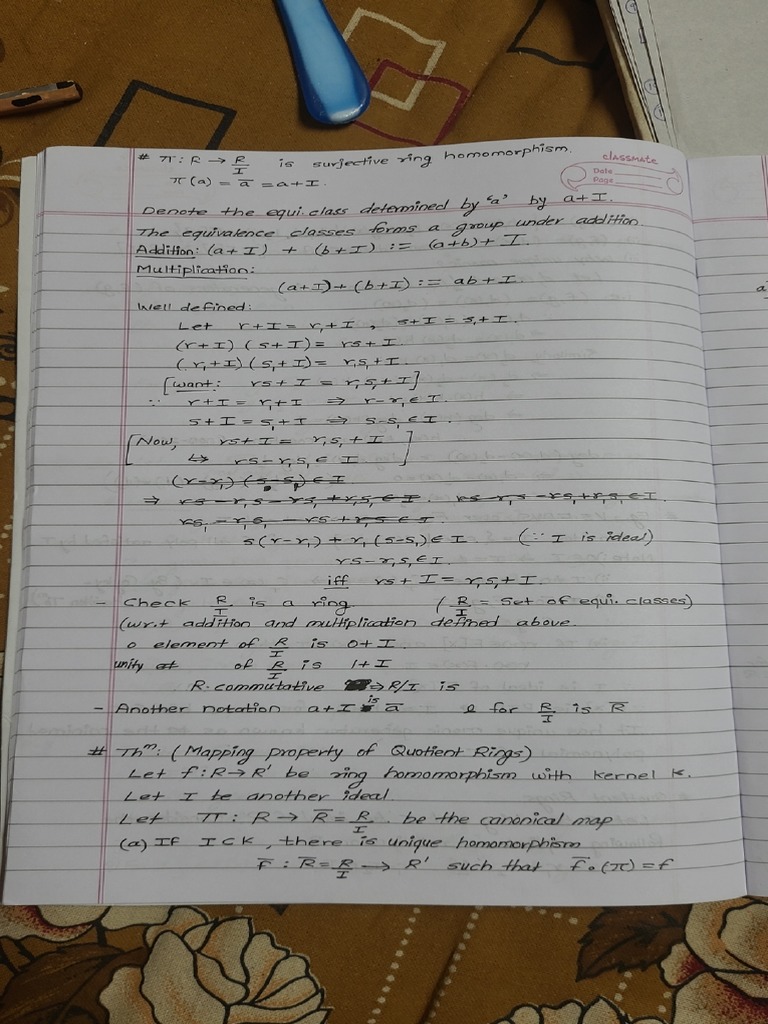 # π : R → R/I is surjective ring homomorphism.
classmate
Date
Page
π(a) = a̅ = a+I.
Denote the equi. class determined by 'a' by a+I.
The equivalence classes forms a group under addition
Addition: (a+I) + (b+I) := (a+b)+I.
Multiplication:
(a+I)+(b+I) := ab+I.
Well defined:
Let r+I = r₁+I , s+I = s₁+I.
(r+I) (s+I) = rs+I
(r₁+I) (s₁+I) = r₁s₁+I.
[Want: rs+I = r₁s₁+I]
∵ r+I = r₁+I ⇒ r-r₁ ∈ I.
s+I = s₁+I ⇒ s-s₁ ∈ I.
[Now, rs+I = r₁s₁+I
↔ rs-r₁s₁ ∈ I ]
(r-r₁) (s-s₁) ∈ I
⇒ rs-r₁s-rs₁+r₁s₁ ∈ I. rs-r₁s-rs₁+r₁s₁ ∈ I.
s(r-r₁) + r₁(s-s₁) ∈ I. (∵ I is ideal)
rs-r₁s₁ ∈ I.
iff rs+I = r₁s₁+I.
- Check R/I is a ring. (R/I = set of equi. classes)
(w.r.t addition and multiplication defined above.
0 element of R/I is 0+I.
unity of R/I is 1+I
R-commutative ⇒ R/I is
- Another notation a+I is a̅ & for R/I is R̅
# Thᵐ: (Mapping property of Quotient Rings)
Let f : R → R' be ring homomorphism with kernel K.
Let I be another ideal.
Let π : R → R̅ = R/I be the canonical map
(a) If I⊂K, there is unique homomorphism
f̅ : R̅ = R/I → R' such that f̅∘(π) = f